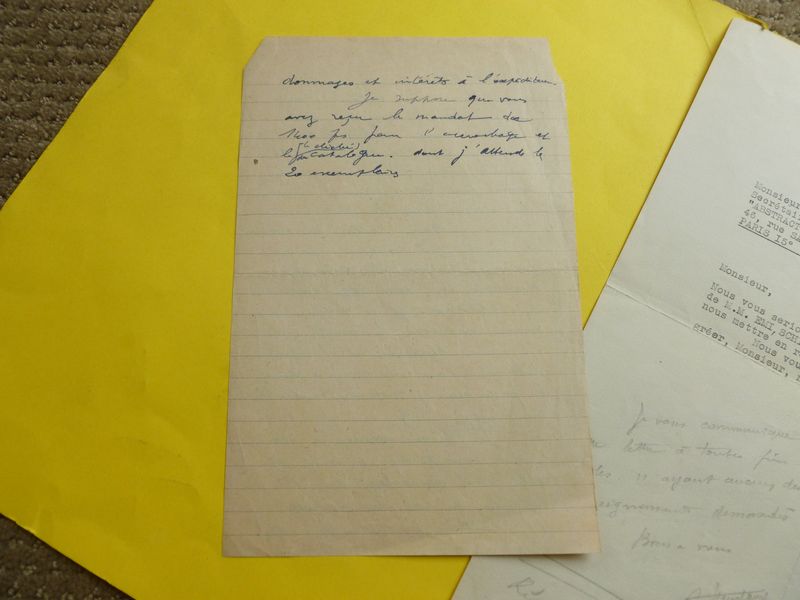 dommages et intérêts à l'expéditeur.
Je suppose que vous
avez reçu le mandat de
pour l'accrochage et
le catalogue. dont j'attends le
20 exemplaires
Monsieur
Secrétai
"ABSTRACT
46, rue SA
PARIS 15°
Monsieur,
Nous vous serio
de M.M. EMI, SCH
nous mettre en r
Nous vou
gréer, Monsieur,
Je vous communique
lettre à toutes fin
n'ayant aucun des
renseignements demandés
Bien à vous